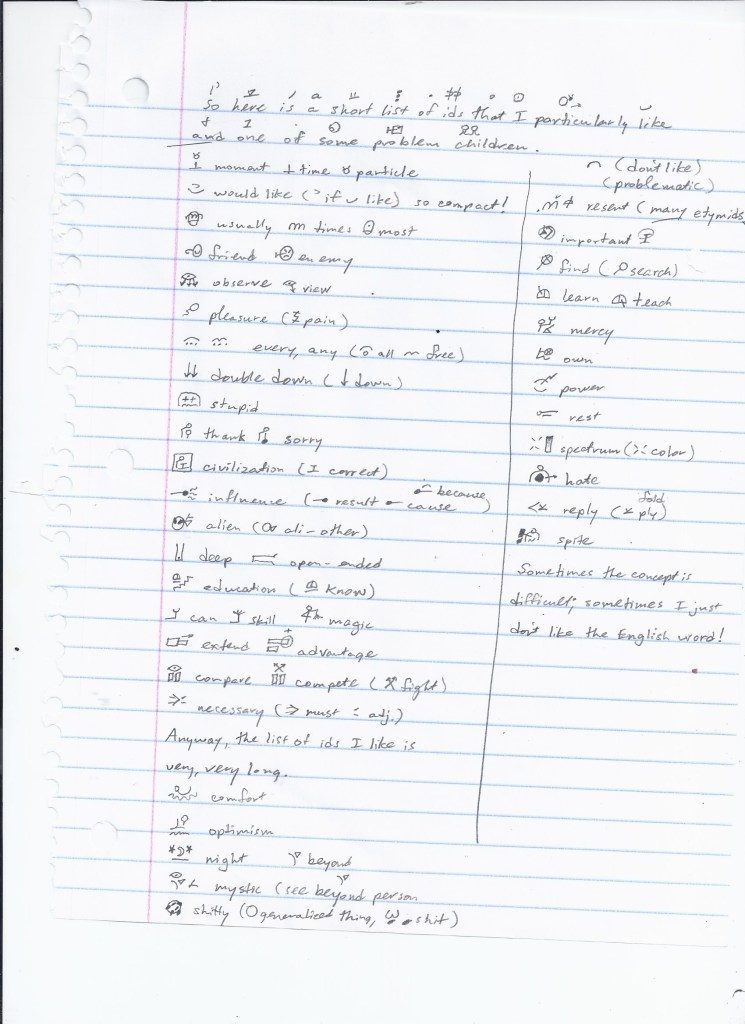 So here is a short list of ids that I particularly like
and one of some problem children.
moment time particle
would like (if like) so compact!
usually times most
friend enemy
observe view
pleasure (pain)
every, any (all free)
double down (down)
stupid
thank sorry
civilization (I correct)
because
influence (result cause)
alien (ali-other)
deep open-ended
education (know)
can skill magic
extend advantage
compare compete (fight)
necessary (must adj.)
Anyway, the list of ids I like is
very, very long.
comfort
optimism
night beyond
mystic (see beyond person
shitty (generalized thing, shit)
(don't like)
(problematic)
resent (many etymids
important
find (search)
learn teach
mercy
own
power
rest
spectrum (color)
hate
fold
reply (ply)
spite
Sometimes the concept is
difficult; sometimes I just
don't like the English word!